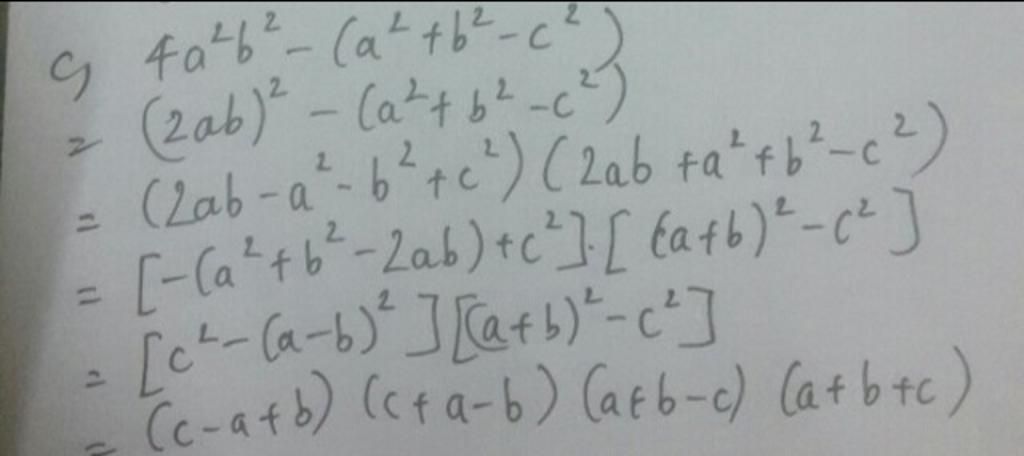 c) 4a²b² - (a² + b² - c²)
= (2ab)² - (a² + b² - c²)
= (2ab - a² - b² + c²) (2ab + a² + b² - c²)
= [-(a² + b² - 2ab) + c²].[(a+b)² - c²]
= [c² - (a-b)²] [(a+b)² - c²]
= (c-a+b) (c+a-b) (a+b-c) (a+b+c)